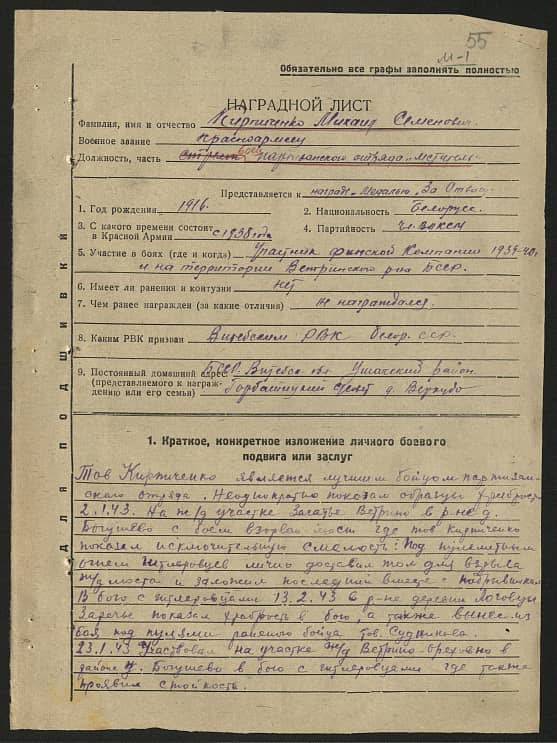 55
М-1
Обязательно все графы заполнять полностью
НАГРАДНОЙ ЛИСТ
Фамилия, имя и отчество Кирпиченко Михаил Семенович
Военное звание Красноармеец
Должность, часть боец партизанского отряда „Мститель“
Представляется к награде – медалью „За Отвагу“
1. Год рождения 1916. 2. Национальность Белорусс.
3. С какого времени состоит в Красной Армии с 1938 года 4. Партийность чл. ВЛКСМ
5. Участие в боях (где и когда) Участник финской Компании 1939-40г
и на территории Ветринского р-на БССР.
6. Имеет ли ранения и контузии нет
7. Чем ранее награжден (за какие отличия) не награждался.
8. Каким РВК призван Витебским РВК Белор. ССР.
9. Постоянный домашний адрес БССР, Витебск. обл. Ушачский район
(представляемого к награждению или его семьи) с/совет д.
1. Краткое, конкретное изложение личного боевого
подвига или заслуг
Тов Кирпиченко является лучшим бойцом партизан-
ского отряда. Неоднократно показал образцы храбрости
2.1.43. На ж/д участке Загатье Ветрино в р-не д.
Богушево с боем взорван мост где тов Кирпиченко
показал исключительную смелость: Под пулеметным
огнем гитлеровцев лично доставил тол для взрыва
ж/д моста и заложил последний вместе с подрывником
В бою с гитлеровцами 13.2.43 в р-не деревни
Заречье показал храбрость в бою, а также вынес из
боя под пулями раненого бойца тов. Судникова.
23.1.43 Участвовал на участке ж/д Ветрино Ореховно в
районе д. Богушево в бою с гитлеровцами где также
проявил стойкость.
ДЛЯ ПОДШИВКИ